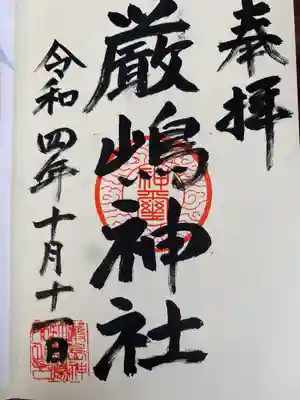 奉拝
厳嶋神社
令和四年十月十一日